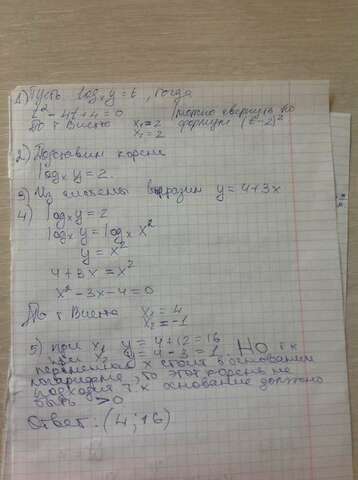 1) Пусть log_x y = t, тогда
t² - 4t + 4 = 0 можно свернуть по
По т Виета x₁ = 2 формуле (t-2)²
x₂ = 2
2) Подставим корни
log_x y = 2
3) Из системы выразим y = 4 + 3x
4) log_x y = 2
log_x y = log_x x²
y = x²
4 + 3x = x²
x² - 3x - 4 = 0
По т Виета x₁ = 4
x₂ = -1
5) при x₁ y = 4 + 12 = 16
при x₂ y = 4 - 3 = 1 Но т к
переменная x стоит в основании
логарифма, то этот корень не
подходит т. к основание должно
быть > 0
Ответ: (4; 16)